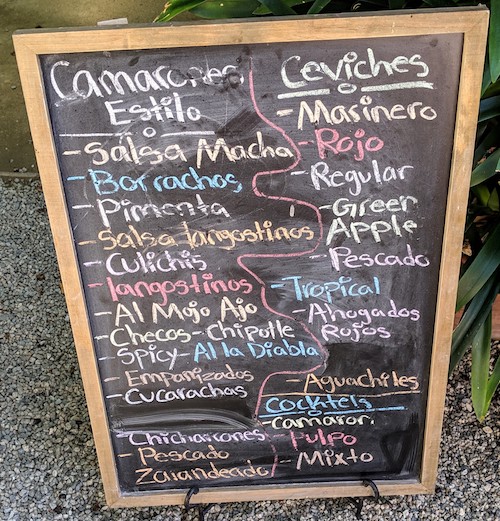 Camarones
Estilo
- Salsa Macha
- Borrachos
- Pimenta
- Salsa langostinos
- Culichis
- langostinos
- Al Mojo Ajo
- Checos - Chipotle
- Spicy - Al la Diabla
- Empanizados
- Cucarachas
- Chicharrones
- Pescado
Zarandeado
Ceviches
- Marinero
- Rojo
- Regular
- Green
Apple
- Pescado
- Tropical
- Ahogados
Rojos
- Aguachiles
Cocktels
- Camaron
- Pulpo
- Mixto